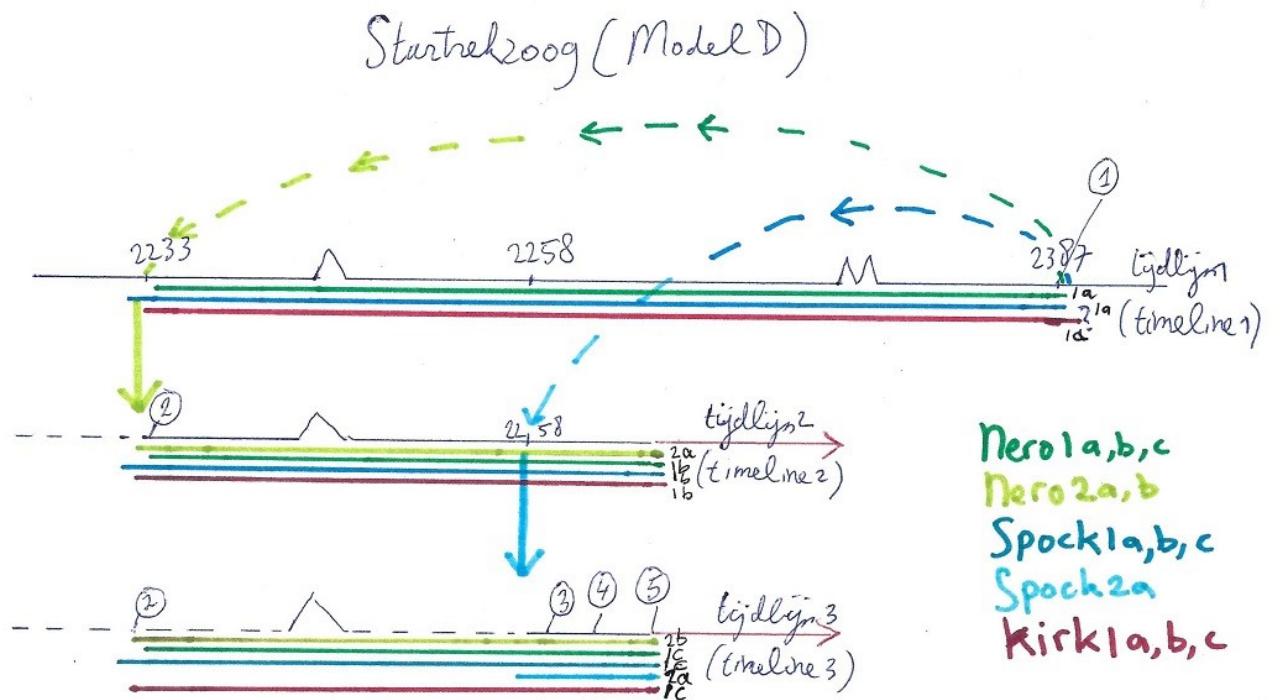 Startrek2009 (Model D)
1
2233
2258
2387
tijdlijn1
1a
1a
1a
(timeline1)
2
2258
tijdlijn2
2a
1b
1b
1b
(timeline2)
2
3
4
5
tijdlijn3
2b
1c
1c
2a
1c
(timeline3)
Nero1a,b,c
Nero2a,b
Spock1a,b,c
Spock2a
Kirk1a,b,c